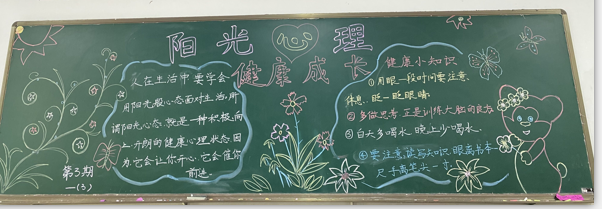 阳光心理
健康成长
在生活中要学会
用阳光般心态面对生活,所
谓阳光心态,就是一种积极,向
上开朗的健康心理状态.因
为它会让你开心.它会催你
前进.
第3期
一(3)
健康小知识
①用眼一段时间要注意
休息.眨一眨眼睛.
②多做思考 正是训练大脑的良方
③白天多喝水.晚上少喝水.
④要注意读写知识.眼离书本
尺手离笔尖一寸.